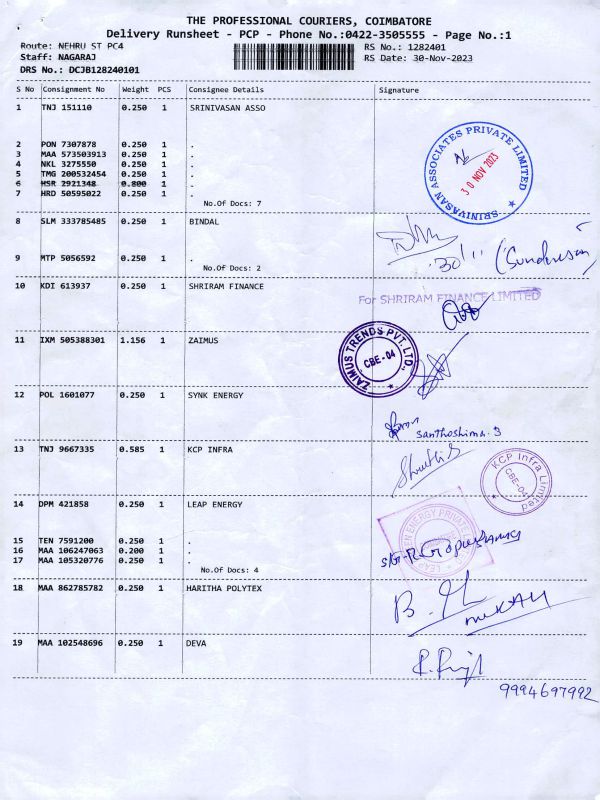 THE PROFESSIONAL COURIERS, COIMBATORE
Delivery Runsheet - PCP - Phone No.:0422-3505555 - Page No.:1
Route: NEHRU ST PC4 RS No.: 1282401
Staff: NAGARAJ RS Date: 30-Nov-2023
DRS No.: DCJB128240101
S No Consignment No Weight PCS Consignee Details Signature
1 TNJ 151110 0.250 1 SRINIVASAN ASSO
2 PON 7307878 0.250 1 .
3 MAA 573503913 0.250 1 .
4 NKL 3275550 0.250 1 .
5 TMG 200532454 0.250 1 .
6 HSR 2921348 0.800 1 .
7 HRD 50595022 0.250 1 .
No.Of Docs: 7
SRINIVASAN ASSOCIATES PRIVATE LIMITED
30 NOV 2023
8 SLM 333785485 0.250 1 BINDAL
9 MTP 5056592 0.250 1 .
No.Of Docs: 2
30/11 (Sundaresan)
10 KDI 613937 0.250 1 SHRIRAM FINANCE
For SHRIRAM FINANCE LIMITED
11 IXM 505388301 1.156 1 ZAIMUS
ZAIMUS TRENDS PVT. LTD.,
CBE-04
12 POL 1601077 0.250 1 SYNK ENERGY
Santhoshima.S
13 TNJ 9667335 0.585 1 KCP INFRA
KCP Infra Limited
CBE-04
14 DPM 421858 0.250 1 LEAP ENERGY
15 TEN 7591200 0.250 1 .
16 MAA 106247063 0.200 1 .
17 MAA 105320776 0.250 1 .
No.Of Docs: 4
18 MAA 862785782 0.250 1 HARITHA POLYTEX
19 MAA 102548696 0.250 1 DEVA
9994697992